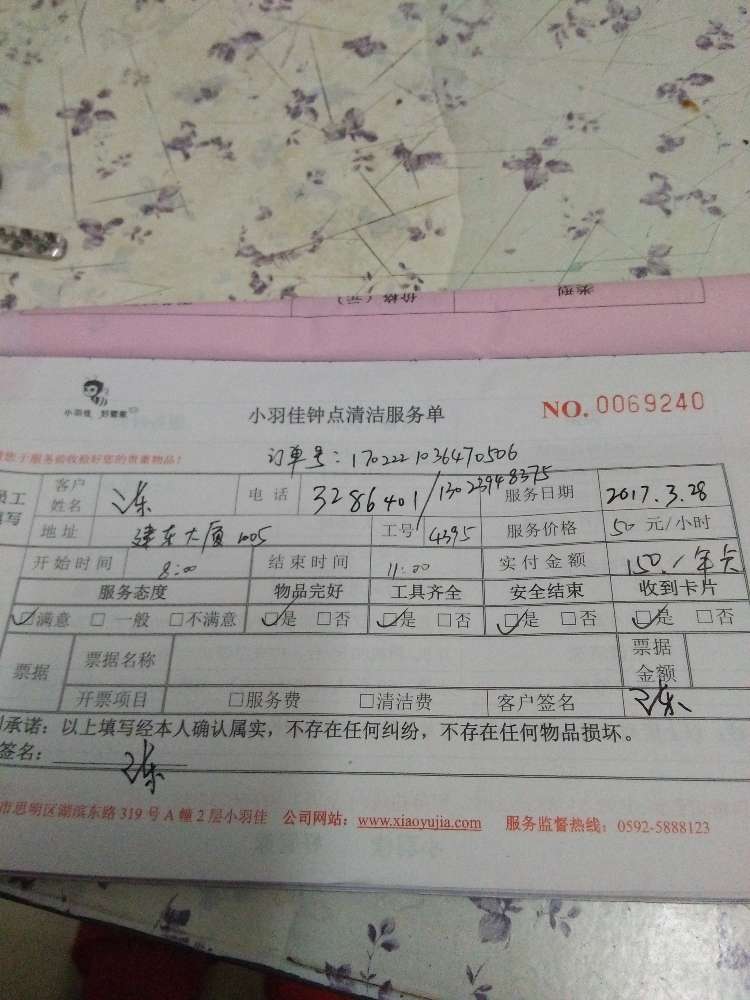 类型 价格(元)
小羽佳 好管家
小羽佳钟点清洁服务单 NO. 0069240
于服务前收检好您的贵重物品!
订单号: 1702221036470506
员工填写 客户姓名 电话 3286401/13023948375 服务日期 2017.3.28
地址 建东大厦1005 工号 4395 服务价格 50 元/小时
开始时间 8:00 结束时间 11:00 实付金额 150./年卡
服务态度 物品完好 工具齐全 安全结束 收到卡片
☑满意 □一般 □不满意 ☑是 □否 ☑是 □否 ☑是 □否 ☑是 □否
票据 票据名称 票据金额
开票项目 □服务费 □清洁费 客户签名
承诺:以上填写经本人确认属实,不存在任何纠纷,不存在任何物品损坏。
签名:
市思明区湖滨东路 319 号 A 幢 2 层小羽佳 公司网站:www.xiaoyujia.com 服务监督热线:0592-5888123